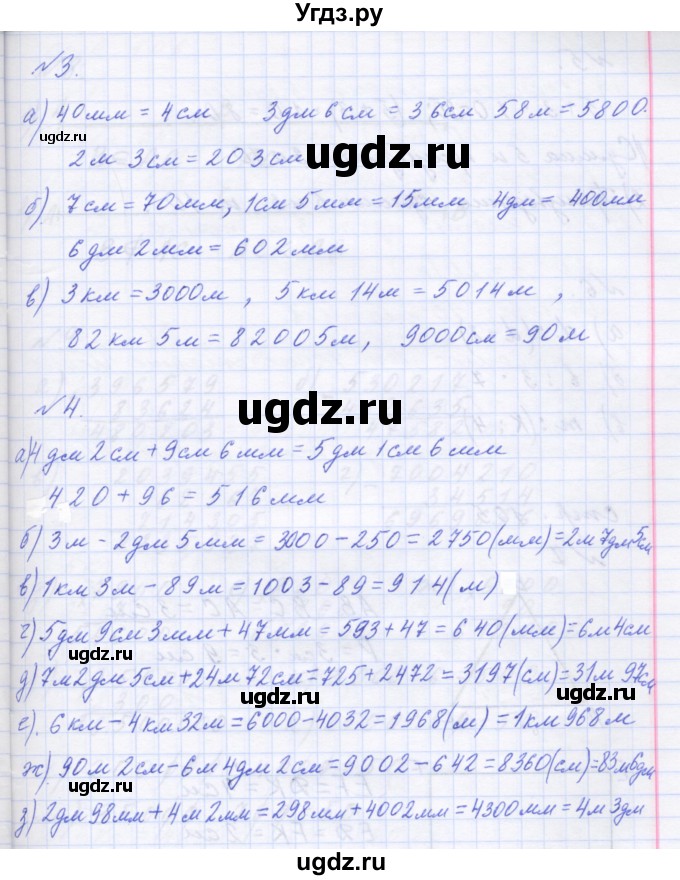 Угдз.ру
№3.
а) 40мм = 4см 3дм 6см = 36см 58м = 5800.
2м 3см = 203см
ugdz.ru
ugdz.ru
б) 7см = 70мм, 1см 5мм = 15мм 4дм = 400мм
6дм 2мм = 602мм
в) 3км = 3000м, 5км 14м = 5014м,
82км 5м = 82005м, 9000см = 90м
ugdz.ru
№4.
ugdz.ru
а) 4дм 2см + 9см 6мм = 5дм 1см 6мм
420 + 96 = 516мм
б) 3м - 2дм 5мм = 3000 - 250 = 2750(мм) = 2м 7дм 5см
в) 1км 3м - 89м = 1003 - 89 = 914(м)
г) 5дм 9см 3мм + 47мм = 593 + 47 = 640(мм) = 6м 4см
ugdz.ru
д) 7м 2дм 5см + 24м 72см = 725 + 2472 = 3197(см) = 31м 97см
е). 6км - 4км 32м = 6000 - 4032 = 1968(м) = 1км 968м
ugdz.ru
ж) 90м 2см - 6м 4дм 2см = 9002 - 642 = 8360(см) = 83м 6дм
з) 2дм 98мм + 4м 2мм = 298мм + 4002мм = 4300мм = 4м 3дм
ugdz.ru